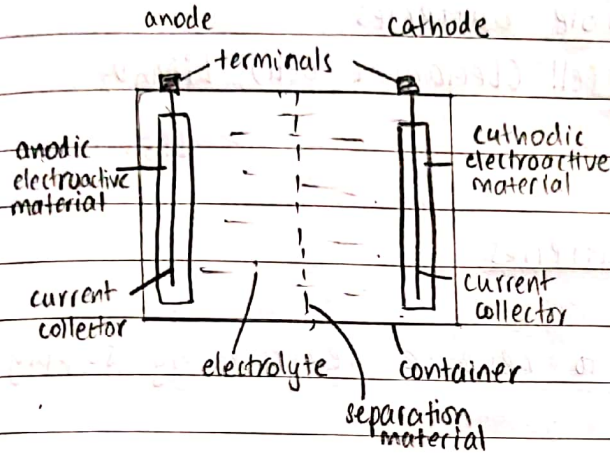 anode
cathode
terminals
anodic
electroactive
material
cathodic
electroactive
material
current
collector
current
collector
electrolyte
container
separation
material